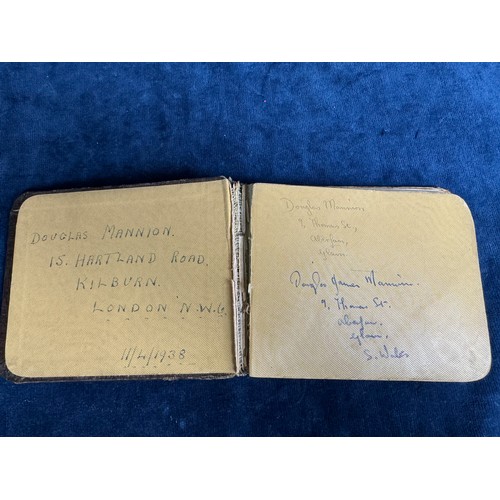 DOUGLAS MANNION.
15. HARTLAND ROAD,
KILBURN.
LONDON N.W.6.
11/4/1938
Douglas Mannion
9 Thomas St.,
Abefan,
Glam
Douglas James Mannion.
9, Thomas St.
Abefan.
Glam.
S. Wales